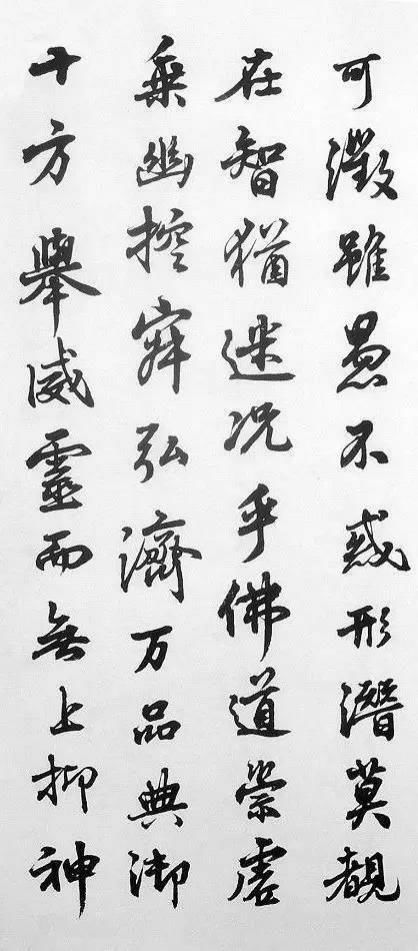 可徵雖愚不惑形潛莫覩
在智猶迷况乎佛道崇虛
乘幽控寂弘濟万品典御
十方舉威靈而無上抑神